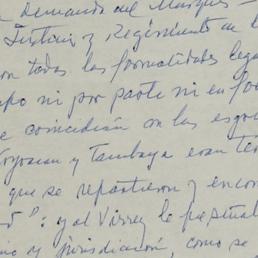 Demanda del Marques
Justicia y Regimiento de
con todas las formalidades lega
ni por parte ni en for
coincidian con las
y Tambaya eran
que se repartieron y encon
": y al Virrey le
y jurisdiccion, como se